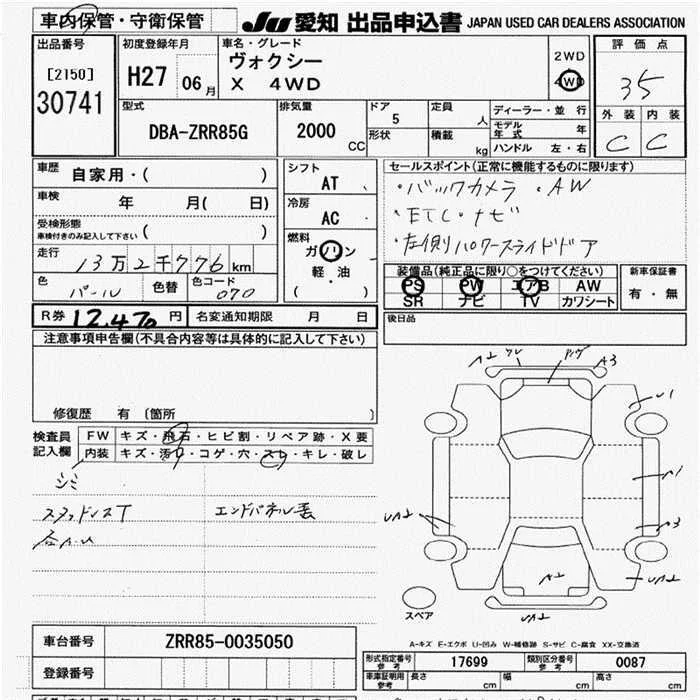 車内保管・守衛保管 JU 愛知 出品申込書 JAPAN USED CAR DEALERS ASSOCIATION
出品番号 [2150] 30741
初度登録年月 H27 06月
車名・グレード ヴォクシー X 4WD
2WD 4WD
評価点 35
外装 内装 C C
型式 DBA-ZRR85G
排気量 2000 CC
ドア 5 形状
定員 人 積載 kg
ディーラー・並行
モデル年式 年
ハンドル 左・右
車歴 自家用・( )
車検 年 月( 日)
受検形態 車検付きのみ記入して下さい ( )
走行 13万2千776km
色 パール 色替 色コード 070
シフト AT
冷房 AC
燃料 ガソリン 軽・油 ( )
セールスポイント(正常に機能するものに限ります)
・バックカメラ ・AW
・ETC・ナビ
・左側パワースライドドア
装備品(純正品に限り○をつけてください)
PS PW エアB AW
SR ナビ TV カワシート
新車保証書 有・無
R券 12,470円 名変通知期限 月 日
後日品
注意事項申告欄(不具合内容等は具体的に記入して下さい)
修復歴 有 〔箇所 〕
検査員記入欄
FW キズ・飛石・ヒビ割・リペア跡・X要
内装 キズ・汚レ・コゲ・穴・スレ・キレ・破レ
シミ
スタッドレスT エンドパネル
A3
U1
A1
A3
UA2
UA2
A2
UA2
スペア
A-キズ E-エクボ U-凹み W-補修跡 S-サビ C-腐食 XX-交換済
車台番号 ZRR85-0035050
登録番号
形式指定番号 参考 17699 類別区分番号 参考 0087
車庫証明用 参考 長さ cm 幅 cm 高さ cm